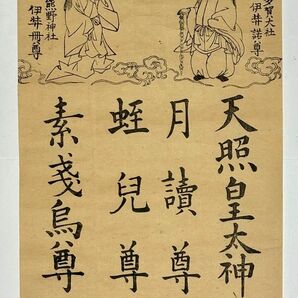 多賀大社
伊弉諾尊
熊野神社
伊弉冊尊
天照皇太神
月讀尊
蛭兒尊
素戔烏尊